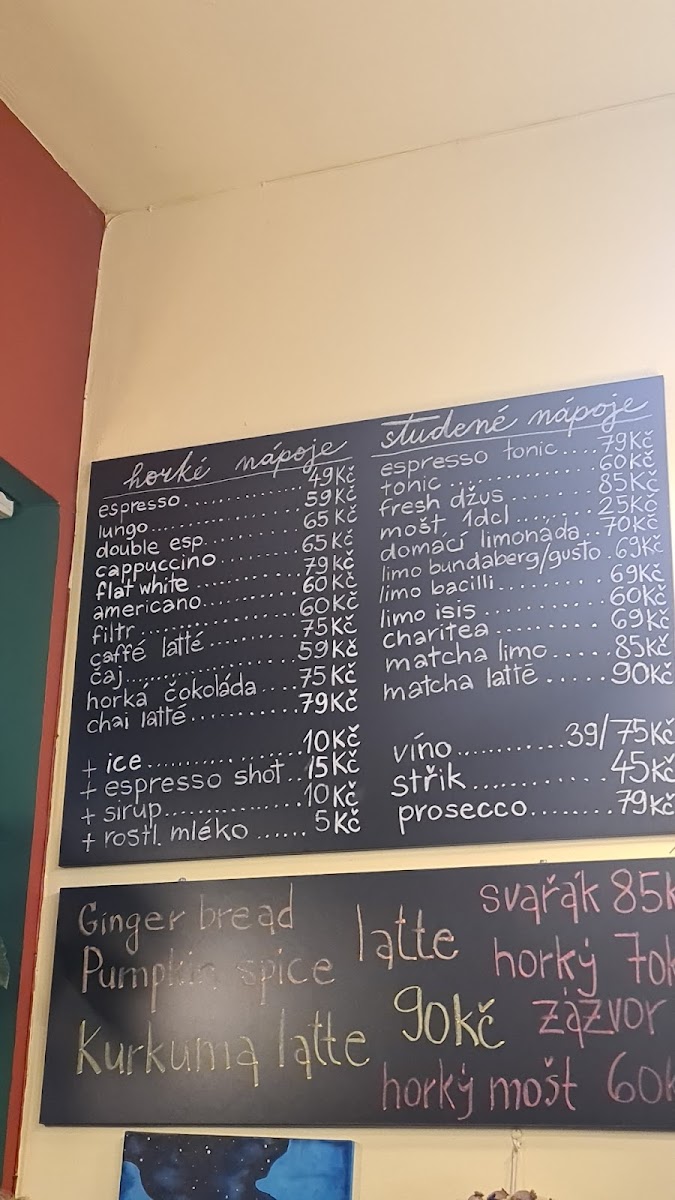 horké nápoje
espresso..............49Kč
lungo..............59Kč
double esp..........65Kč
cappuccino..........65Kč
flat white..........79Kč
americano..........60Kč
filtr..............60Kč
caffé latté..........75Kč
čaj..............59Kč
horká čokoláda....75Kč
chai latté..........79Kč
+ ice..............10Kč
+ espresso shot..15Kč
+ sirup..............10Kč
+ rostl. mléko......5Kč
studené nápoje
espresso tonic....79Kč
tonic..............60Kč
fresh džus........85Kč
mošt 1dcl........25Kč
domácí limonáda..70Kč
limo bundaberg/gusto.69Kč
limo bacilli........69Kč
limo isis..........60Kč
charitea..........69Kč
matcha limo.....85Kč
matcha latté.....90Kč
víno...........39/75Kč
střik............45Kč
prosecco........79Kč
Ginger bread
Pumpkin spice latte
Kurkuma latte 90kč
svařák 85k
horký 70k
zázvor
horký mošt 60k